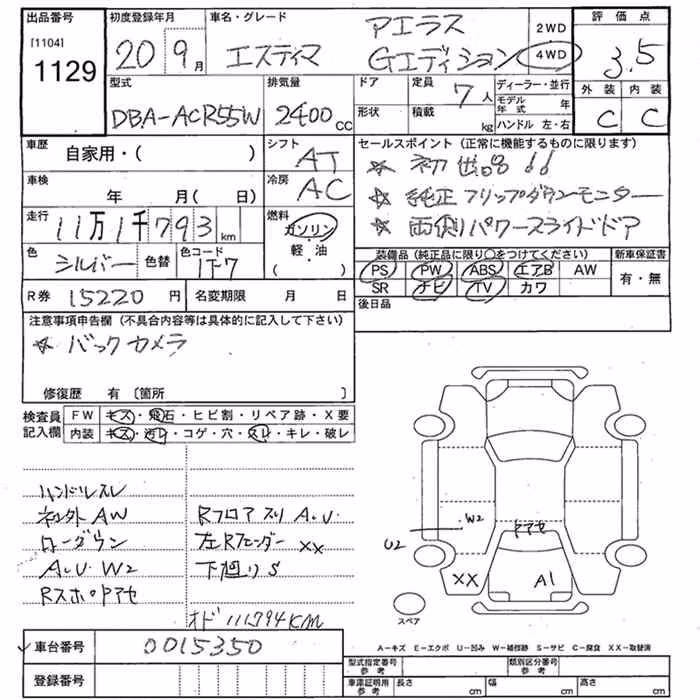 出品番号
[1104]
1129
初度登録年月
20 9月
車名・グレード
アエラス
エスティマ Gエディション
2WD
4WD
評価点
3.5
外装 内装
C C
型式
DBA-ACR55W
排気量
2400cc
ドア
形状
定員
7人
積載
kg
ディーラー・並行
モデル年式 年
ハンドル 左・右
車歴
自家用・( )
シフト
AT
セールスポイント(正常に機能するものに限ります)
☆ 初出品!!
☆ 純正フリップダウンモニター
☆ 両側パワースライドドア
車検
年 月( 日)
冷房
AC
走行
11万1千793km
燃料
ガソリン
軽・油
( )
色
シルバー
色替
色コード
1F7
装備品(純正品に限り○をつけてください)
PS PW ABS エアB AW
SR ナビ TV カワ
新車保証書
有・無
R券 15220円
名変期限 月 日
後日品
注意事項申告欄(不具合内容等は具体的に記入して下さい)
☆ バックカメラ
修復歴 有〔箇所 〕
検査員記入欄
FW キズ・飛石・ヒビ割・リペア跡・X要
内装 キズ・汚レ・コゲ・穴・スレ・キレ・破レ
ハンドルスレ
社外AW
ローダウン
A.U.W2
RスポDアセ
Rフロアスリ A.U.
左Rフェンダー XX
下廻りS
オド111794KM
W2
U2
ドアセ
XX
A1
スペア
A-キズ E-エクボ U-凹み W-補修跡 S-サビ C-腐食 XX-取替済
車台番号 0015350
登録番号
型式指定番号参考
類別区分番号参考
車庫証明用参考 長さ cm 幅 cm 高さ cm